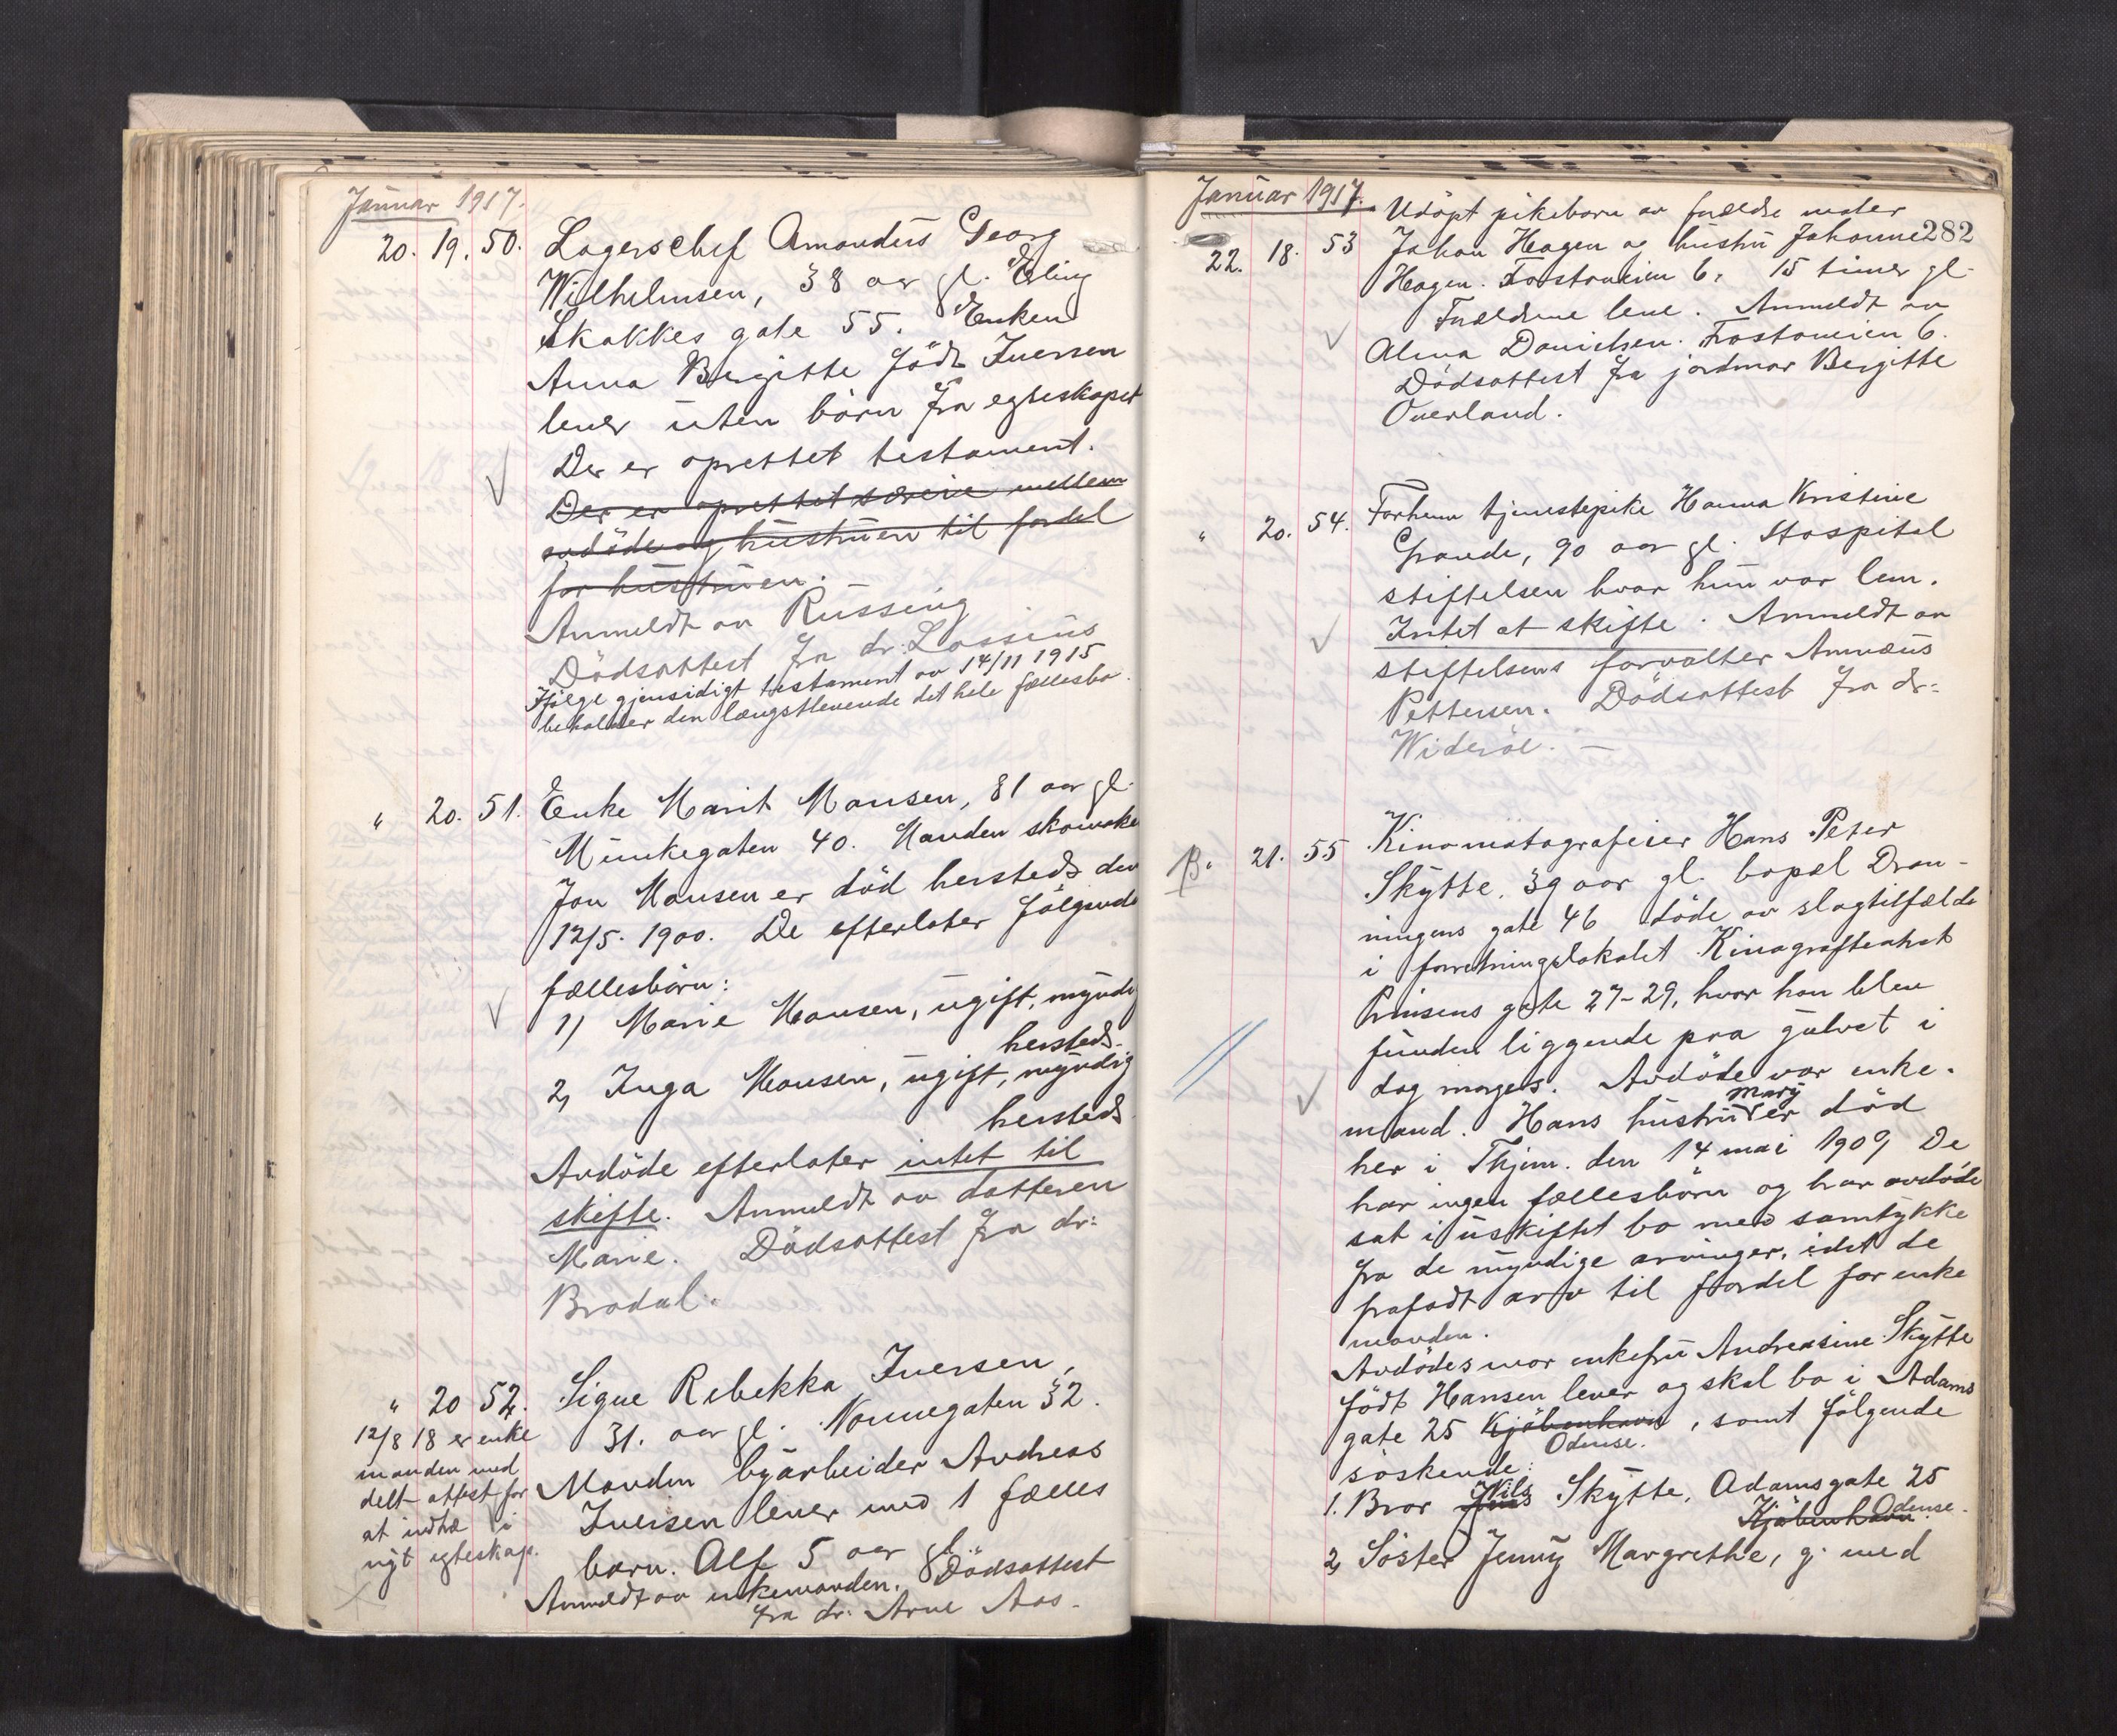 Januar 1917.
20. 19. 50. Lagerschef Amandus Georg
Wilhelmsen, 38 aar gl. Erling
Skakkes gate 55. Enken
Anna Birgitte født Iversen
lever uten børn fra egteskapet
Der er oprettet testament.
Der er oprettet særeie mellem
avdöde og hustruen til fordel
for hustruen.
Anmeldt av Russing
Dödsattest fra dr: Lossius
Ifølge gjensidigt testament av 14/11 1915
beholder den længstlevende det hele fællesbo.
" 20. 51. Enke Marit Mausen, 81 aar gl.
Munkegaten 40. Manden skomaker
Jon Mausen er död hersteds den
12/5. 1900. De efterlater følgende
fællesbörn:
1) Marie Mausen, ugift, myndig
hersteds.
2, Inga Mausen, ugift, myndig
hersteds
Avdöde efterlater intet til
skifte. Anmeldt av datteren
Marie. Dödsattest fra dr:
Brodal.
" 20 52. Signe Rebekka Iversen,
31. aar gl. Nonnegaten 32.
Manden byarbeider Andreas
Iversen lever med 1 fælles
barn. Alf 5 aar gl.
Anmeldt av enkemanden. Dödsattest
fra dr: Arne Aas.
12/8 18 er enke
manden med
delt attest for
at indtræ i
nyt egteskap.
Januar 1917.
282
22. 18. 53 Udöpt pikebarn av forældre
Johan Hagen og hustru Johanne
Hagen. Frostaveien 6, 15 timer gl.
Forældrene leve. Anmeldt av
Alma Danielsen. Frostaveien 6.
Dödsattest fra jordmor Bergitte
Overland.
" 20. 54. Forhenv tjenestepike Hanna Kristine
Grande, 90 aar gl. Hospital
stiftelsen hvor hun var lem.
Intet at skifte. Anmeldt av
stiftelsens forvalter Amnæus
Pettersen. Dödsattest fra dr:
Wideröe. —
B. " 21. 55 Kinomatografeier Hans Peter
Skytte, 39 aar gl. bopæl Dron-
ningens gate 46 döde av slagtilfælde
i forretningslokalet Kinografteatret
Prinsens gate 27-29, hvor han blev
funden liggende paa gulvet i
dag morges. Avdöde var enke-
mand. Hans hustru Mary er död
her i Thjem. den 14 mai 1909 De
har ingen fællesbörn og har avdöde
sat i uskiftet bo med samtykke
fra de myndige arvinger, idet de
frafadt arv til fordel for enke
manden.
Avdödes mor enkefru Andreasine Skytte
födt Hansen lever og skal bo i Adams
gate 25 Kjöbenhavn, samt følgende
Odense.
söskende:
1. Bror Jens Nils Skytte, Adamsgate 25
Kjöbenhavn Odense.
2, Söster Jenny Margrethe, g. med